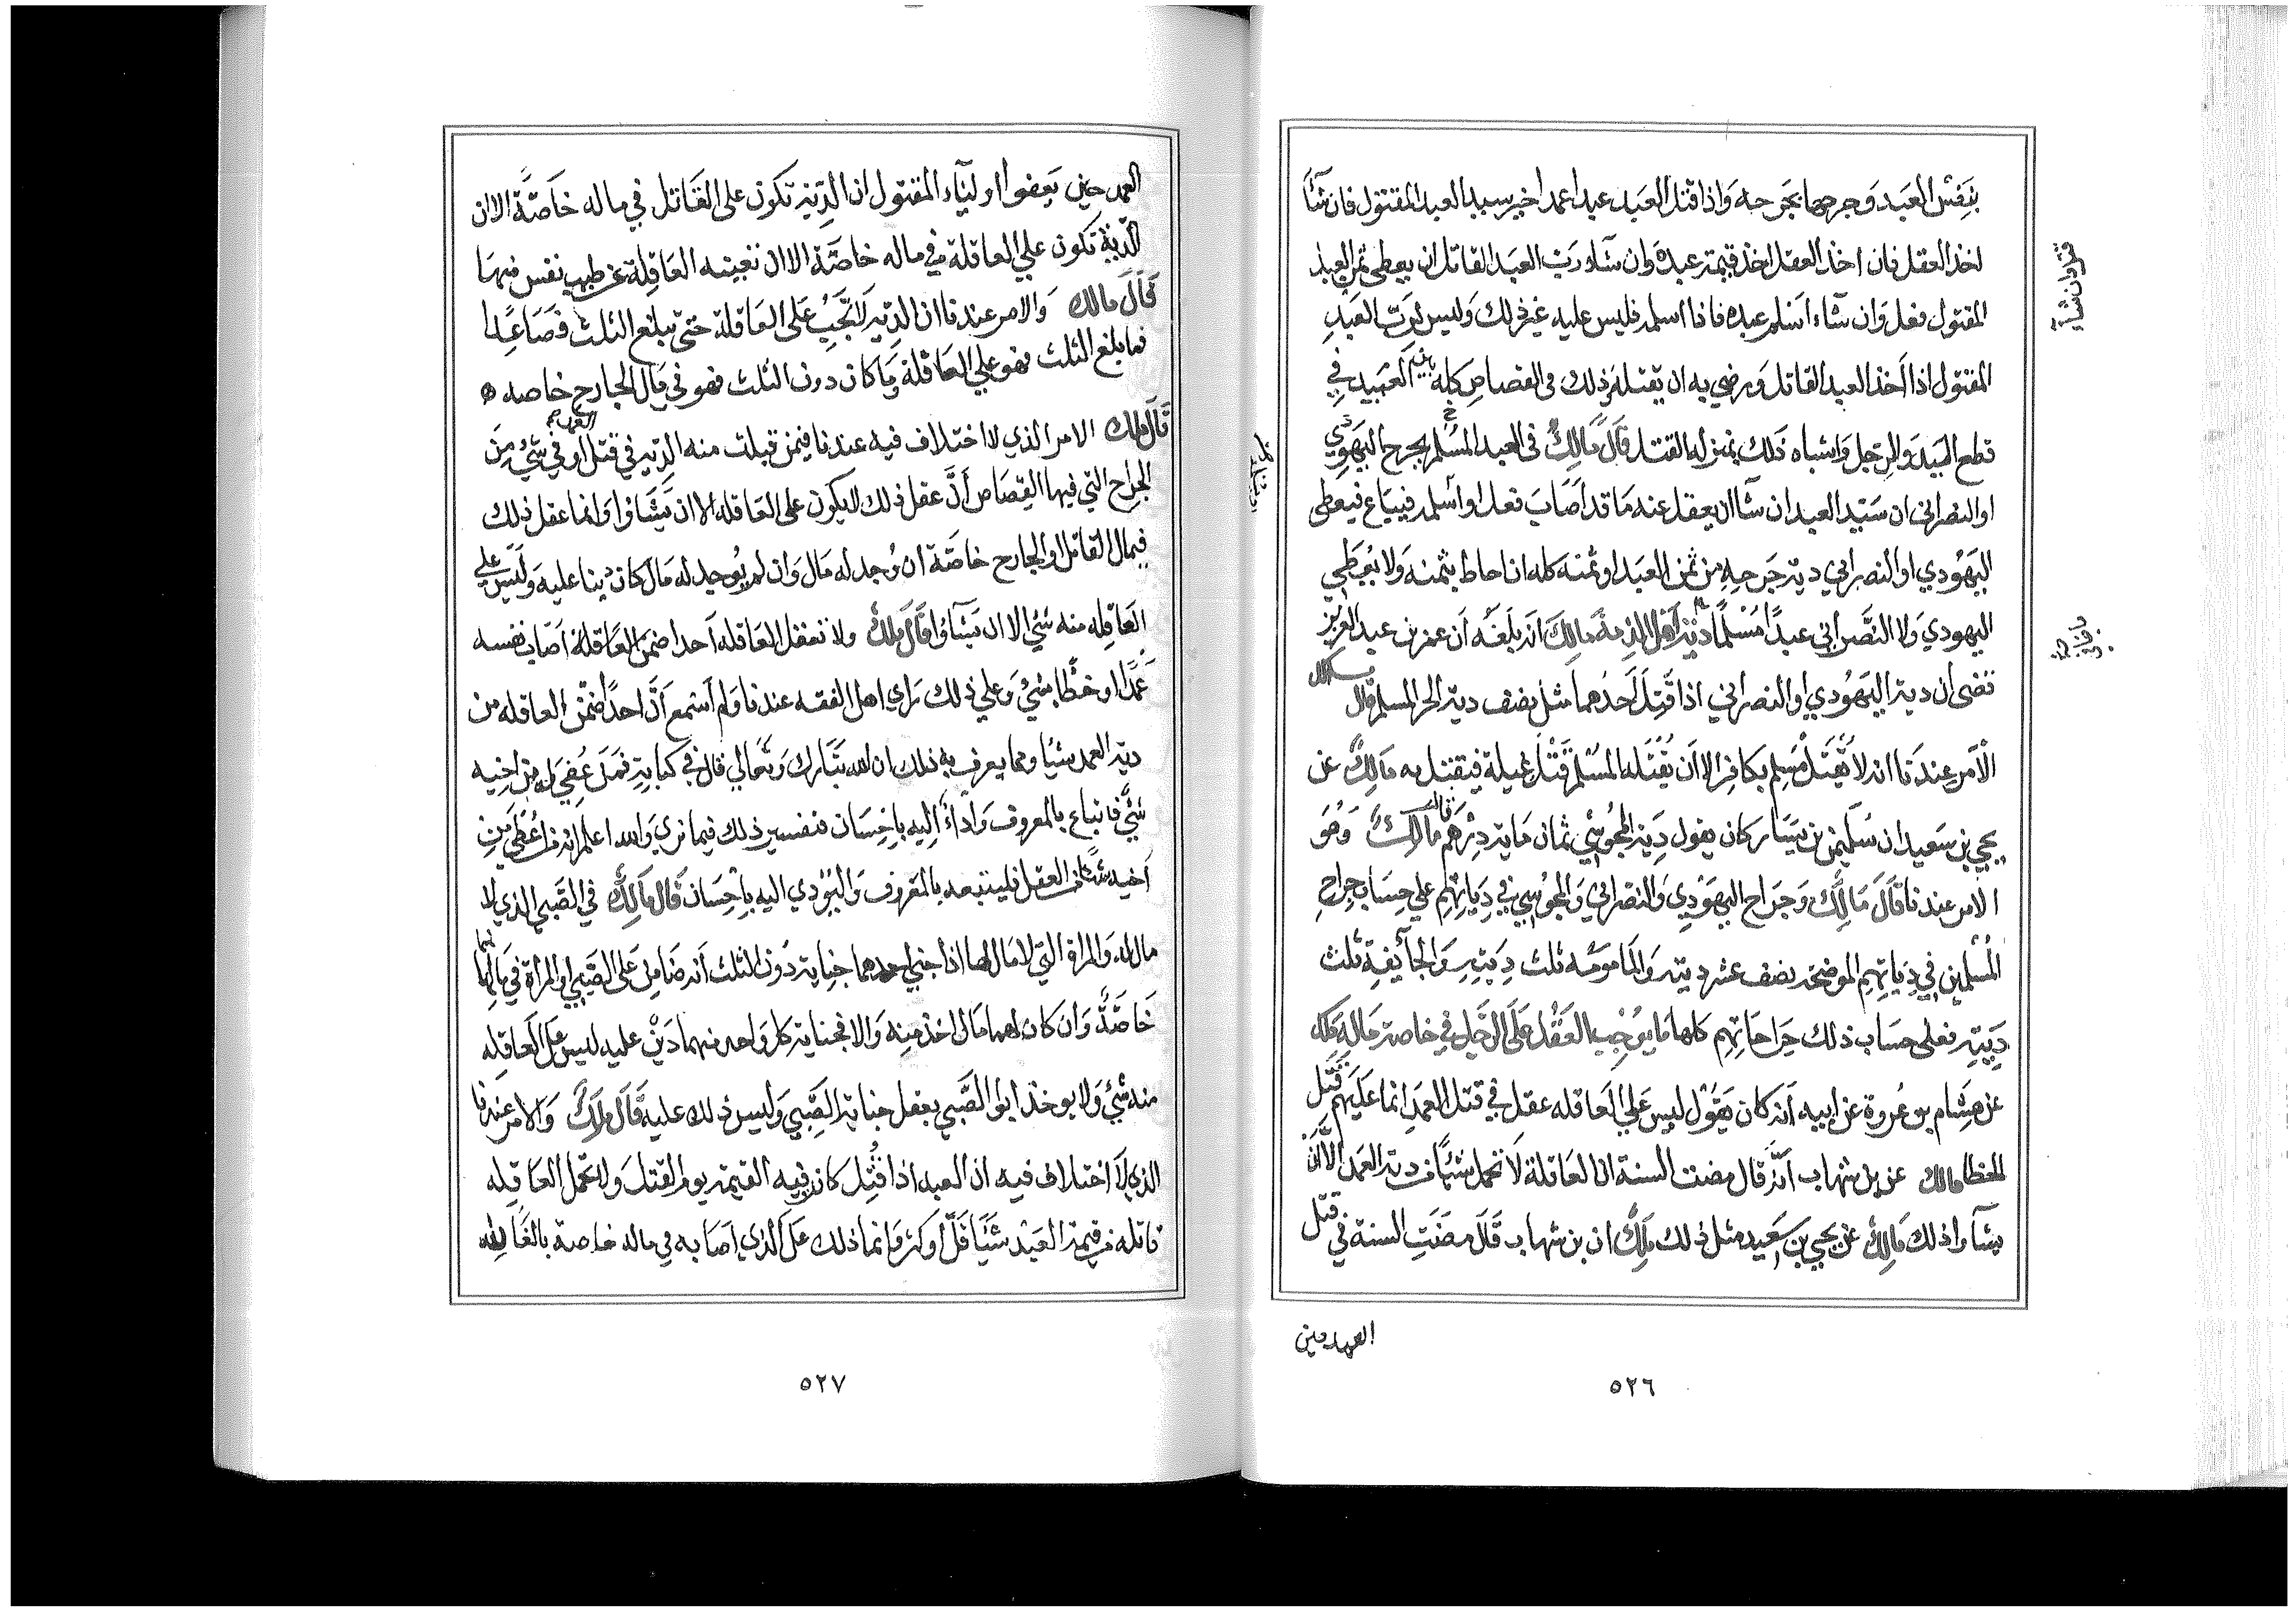 بنفس العبد وجرحها بجرحه واذا قتل العبد عبدا عمدا خير سيد العبد المقتول فان شآ
اخذ العقل فان اخذ العقل اخذ قيمة عبده وان شاء رب العبد القاتل ان يعطي ثمن العبد
المقتول فعل وان شاء اسلم عبده فاذا اسلمه فليس عليه غير ذلك وليس لرب العبد
المقتول اذا اخذ العبد القاتل ورضي به ان يقتله وذلك في القصاص كله بين العبيد في
قطع اليد والرجل واشباه ذلك بمنزلة القتل قال مالك في العبد المسلم يجرح اليهودي
او النصراني ان سيد العبد ان شآ ان يعقل عنه ما قد اصاب فعل او اسلمه فيباع فيعطى
اليهودي او النصراني دية جرحه من ثمن العبد او ثمنه كله ان احاط بثمنه ولا يعطي
اليهودي ولا النصراني عبدا مسلما دية اهل الذمة مالك انه بلغه ان عمر بن عبد العزيز
قضى ان دية اليهودي او النصراني اذا قتل احدهما مثل نصف دية الحر المسلم قال
الامر عندنا انه لا يقتل مسلم بكافر الا ان يقتله المسلم قتل غيلة فيقتل به مالك عن
يحيي بن سعيد ان سليمن بن يسار كان يقول دية المجوسي ثمان ماية درهم قال مالك وهو
الامر عندنا قال مالك وجراح اليهودي والنصراني والمجوسي في دياتهم علي حساب جراح
المسلمين في دياتهم الموضحة نصف عشر ديته والمامومه ثلث ديته والجآيفة ثلث
ديته فعلى حساب ذلك جراحاتهم كلها ما يوجب العقل على الرجل في خاصة ماله ملك
عن هشام بن عروة عن ابيه انه كان يقول ليس علي العاقله عقل في قتل العمد انما عليهم قتل
الخطا مالك عن بن شهاب انه قال مضت السنة ان العاقلة لا تحمل شيئا من دية العمد الا ان
يشآوا ذلك مالك عن يحيي بن سعيد مثل ذلك ملك ان بن شهاب قال مضت السنة في قتل
العمد حين
٥٢٦
العمد حين يعفوا اوليآء المقتول ان الدية تكون على القاتل في ماله خاصة الا ان
الدية تكون علي العاقلة في ماله خاصة الا ان تعينه العاقلة عن طيب نفس منها
قال مالك والامر عندنا ان الدية لا تجب على العاقلة حتى تبلغ الثلث فصاعدا
فما بلغ الثلث فهو علي العاقلة وما كان دون الثلث فهو في مال الجارح خاصه
قال ملك الامر الذي لا اختلاف فيه عندنا فيمن قبلت منه الدية في قتل العمد او في شيء من
الجراح التي فيها القصاص أن عقل ذلك لا يكون على العاقله الا ان يشآوا وانما عقل ذلك
في مال القاتل او الجارح خاصة ان وجد له مال وان لم يوجد له مال كان دينا عليه وليس على
العاقله منه شئ الا ان يشآؤا قال ملك ولا تعقل العاقله احدا ضمن العاقلة اصاب نفسه
عمدا او خطا بشئ وعلي ذلك راي اهل الفقه عندنا ولم اسمع أن احدا ضمن العاقله من
دية العمد شيئا ومما يعرف به ذلك ان الله تبارك وتعالي قال في كتابه فمن عفي له من اخيه
شئ فاتباع بالمعروف وادآء اليه باحسان فتفسير ذلك فيما نري والله اعلم انه من اعطي من
اخيه شئ من العقل فليتبعه بالمعروف وليؤدي اليه باحسان قال مالك في الصبي الذي لا
مال له والمراة التي لا مال لها اذا جني احدهما جناية دون الثلث انه ضامن على الصبي او المرأة في مالهما
خاصة وان كان لهما مال اخذ منه والا فجناية كل واحد منهما دين عليه ليس على العاقله
منه شئ ولا يوخذ ابو الصبي بعقل جناية الصبي وليس ذلك عليه قال ملك والامر عندنا
الذي لا اختلاف فيه ان العبد اذا قتل كانت فيه القيمة يوم القتل ولا تحمل العاقله
قاتله من قيمة العبد شئا قل او كثر وانما ذلك على الذي اصابه في ماله خاصة بالغا
٥٢٧